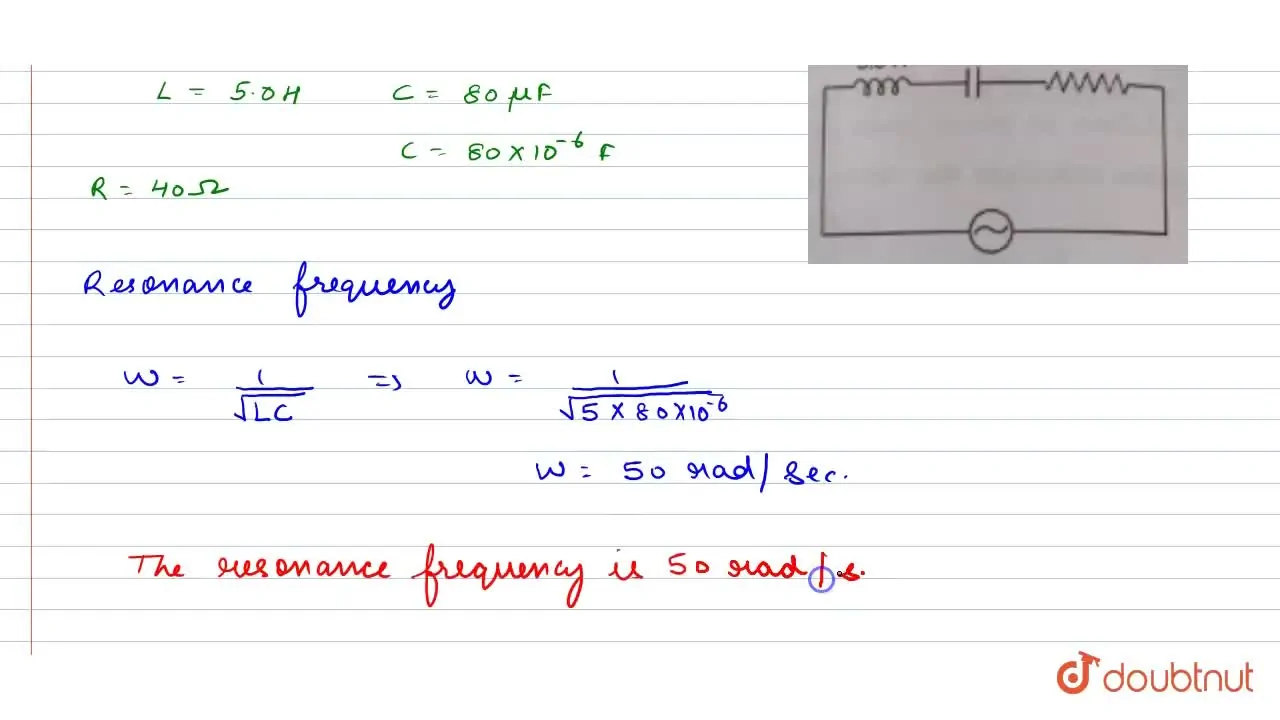 L = 5.0H C = 80 μF
C = 80 × 10⁻⁶ F
R = 40Ω
Resonance frequency
W = 1/√LC => W = 1/√5 × 80 × 10⁻⁶
W = 50 rad/sec.
The resonance frequency is 50 rad/s.
doubtnut